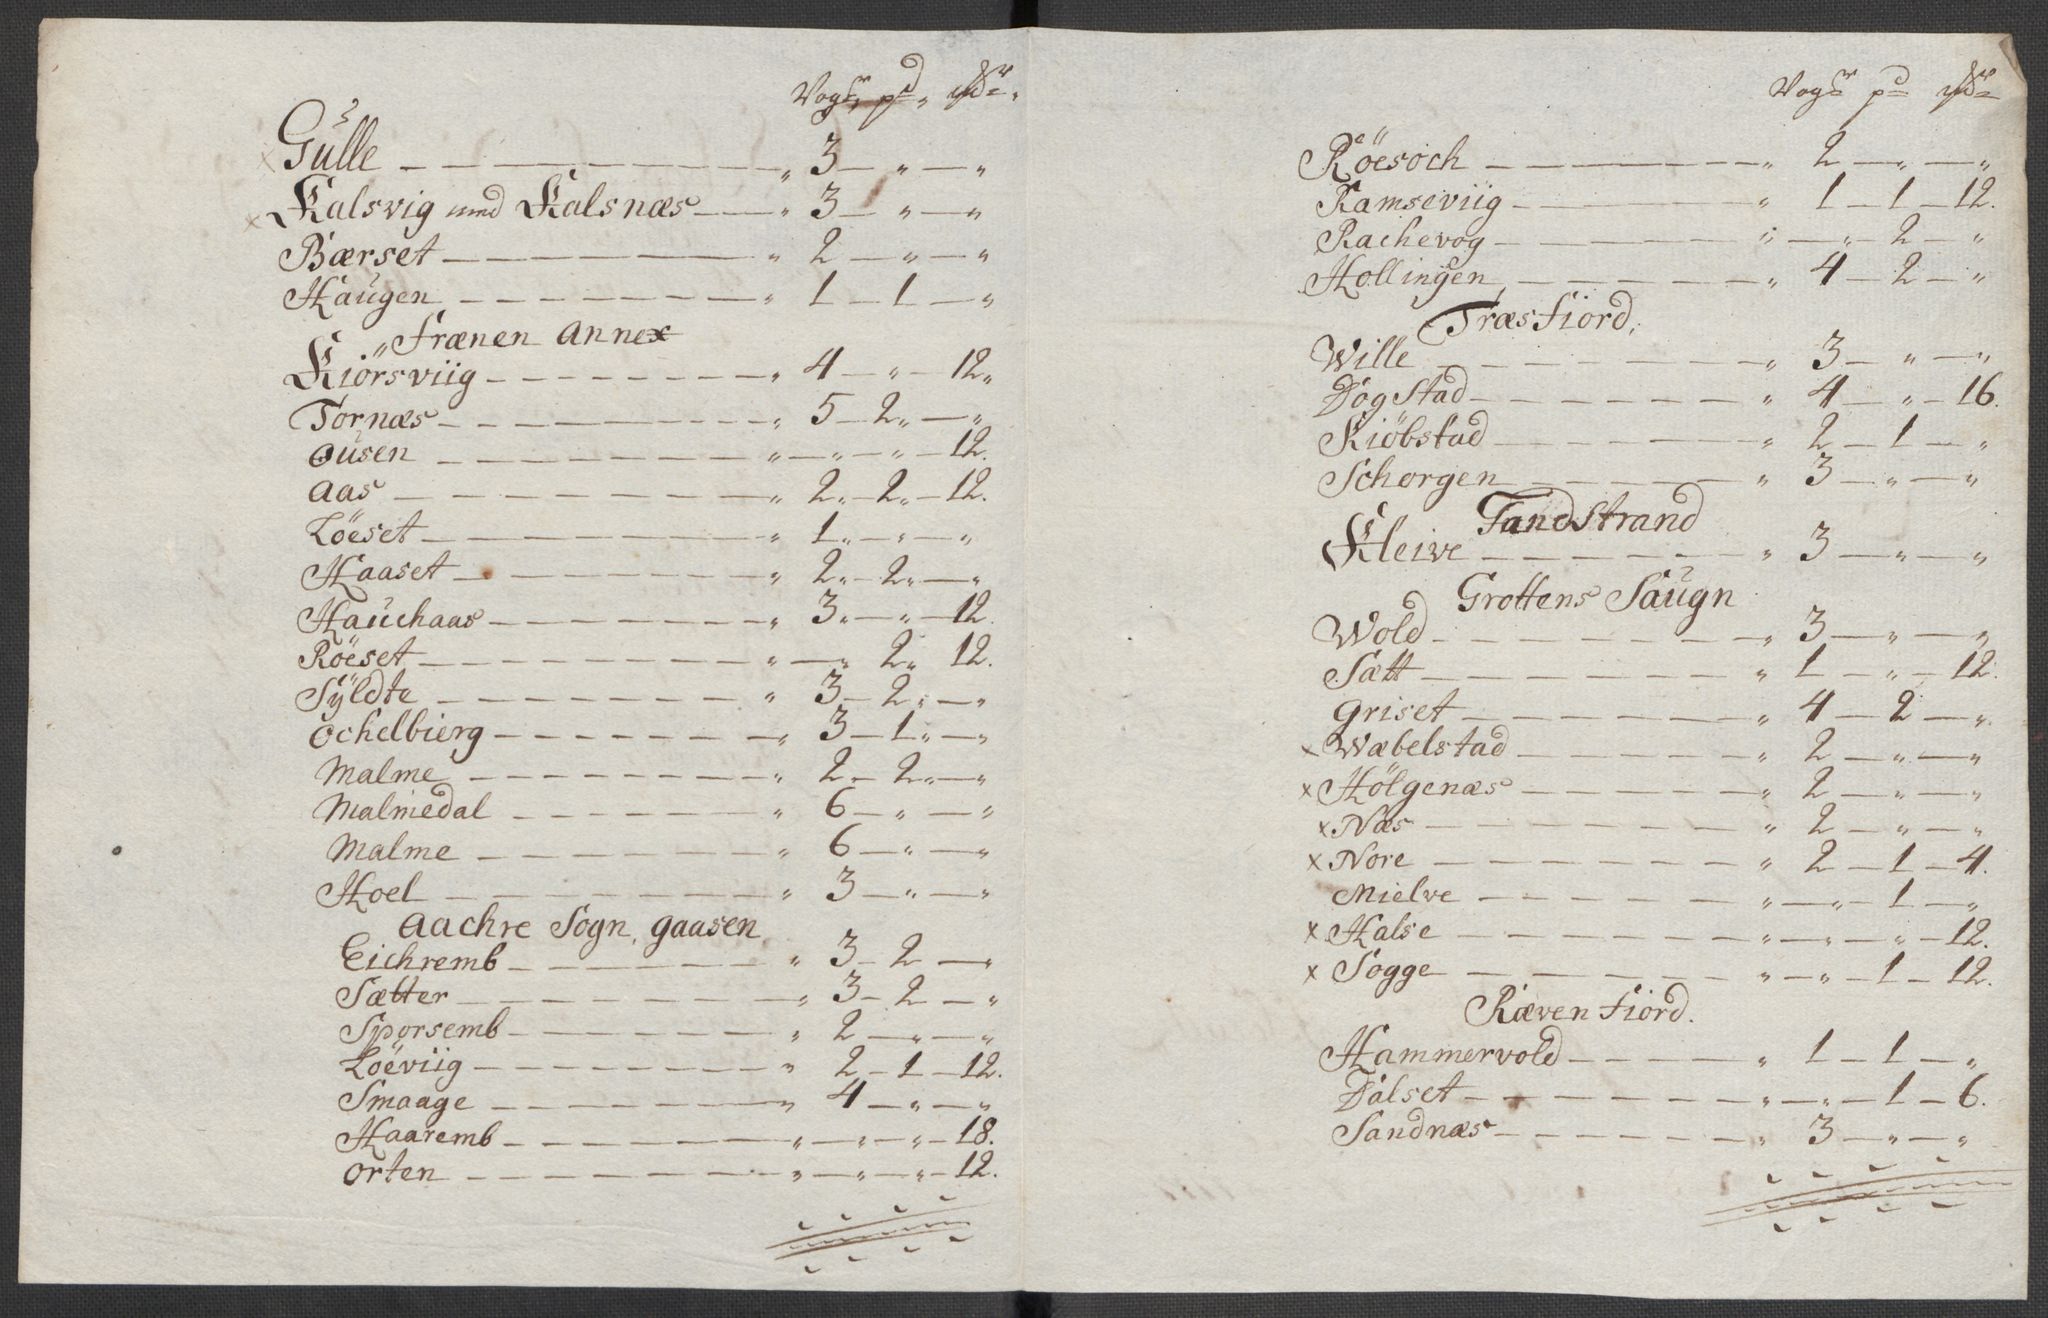 Vogr, pd, mrkr.
× Gulle — „ 3 — „ — „
× Kalsvig med Kalsnæs — „ 3 — „ — „
Bærset — „ 2 — „ — „
Haugen — „ 1 — 1 — „
Frænen Annex
Kiörsviig — „ 4 — „ — 12„
Tornæs — „ 5 — 2„ — „
Ousen — „ — „ — „ — 12.
Aas — „ 2„ — 2„ — 12.
Löeset — „ 1„ — „ — „
Haaset — „ 2„ — 2„ — „
Hauchaas — „ 3„ — „ — 12.
Röeset — „ — „ 2„ 12.
Syldte — „ 3 — 2„ — „
Ochelbierg — „ 3 — 1„ — „
Malme — „ 2 — 2„ — „
Malmedal — „ 6 — „ — „
Malme — „ 6 — „ — „
Hoel — „ 3 — „ — „
Aachre Sogn, Gaasen,
Eichremb — „ 3 — 2 — „
Sætter — „ 3 — 2 — „
Sporsemb — „ 2 — „ — „
Löeviig — „ 2 — 1 — 12.
Smaage — „ 4 — „ — „
Haaremb — „ — „ — „ — 18.
Orten — „ — „ — „ — 12.
Vogr pd mrkr
Röesoch — „ 2 — „ — „
Ramseviig — „ 1 — 1 — 12.
Rachevog — „ — „ — 2 — „
Hollingen — „ 4 — 2 — „
Træsfiörd,
Wille — „ 3 — „ — „
Dogstad — „ 4 — „ — 16.
Kiöbstad — „ 2 — 1 — „
Schorgen — „ 3 — „ — „
Tandstrand
Kleive — „ 3 — „ — „
Grottens Saugn
Wold — „ 3 — „ — „
Sætt — „ 1 — „ — 12.
Griset — „ 4 — 2 — „
× Wæbelstad — „ 2 — „ — „
× Hölgenæs — „ 2 — „ — „
× Næs — „ 2 — „ — „
× Nore — „ 2 — 1 — 4.
Mielve — „ — „ — 1 — „
× Halse — „ — „ — „ — 12.
× Sogge — „ — „ — 1 — 12.
Ræven fiörd.
Hammervold — „ 1 — 1 — „
Dalset — „ — „ — 1 — 6.
Sandnæs — „ 3 — „ — „